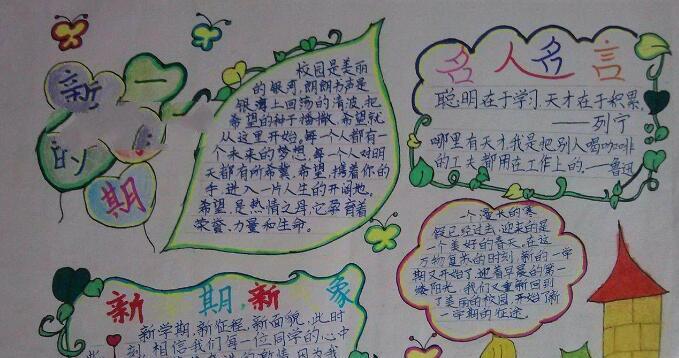 新一
的
期
校园是美丽
的银河,朗朗书声是
银海上回荡的清波,把
希望的种子播撒,希望就
从这里开始,每一个人都有一
个未来的梦想,每一个人对明
天都有所希冀,希望,携着你的
手,进入一片人生的开阔地。
希望,是热情之母,它孕育着
荣誉、力量和生命。
名人名言
聪明在于学习,天才在于积累。
——列宁
哪里有天才,我是把别人喝咖啡
的工夫都用在工作上的。——鲁迅
一个漫长的寒
假已经过去,迎来的是
一个美好的春天。在这
万物复苏的时刻,新的一学
期又开始了,迎着早晨的第一
缕阳光,我们又重新回到
了美丽的校园,开始了新
一学期的征途。
新 期新 象
新学期,新征程,新面貌,此时
刻,相信我们每一位同学的心中